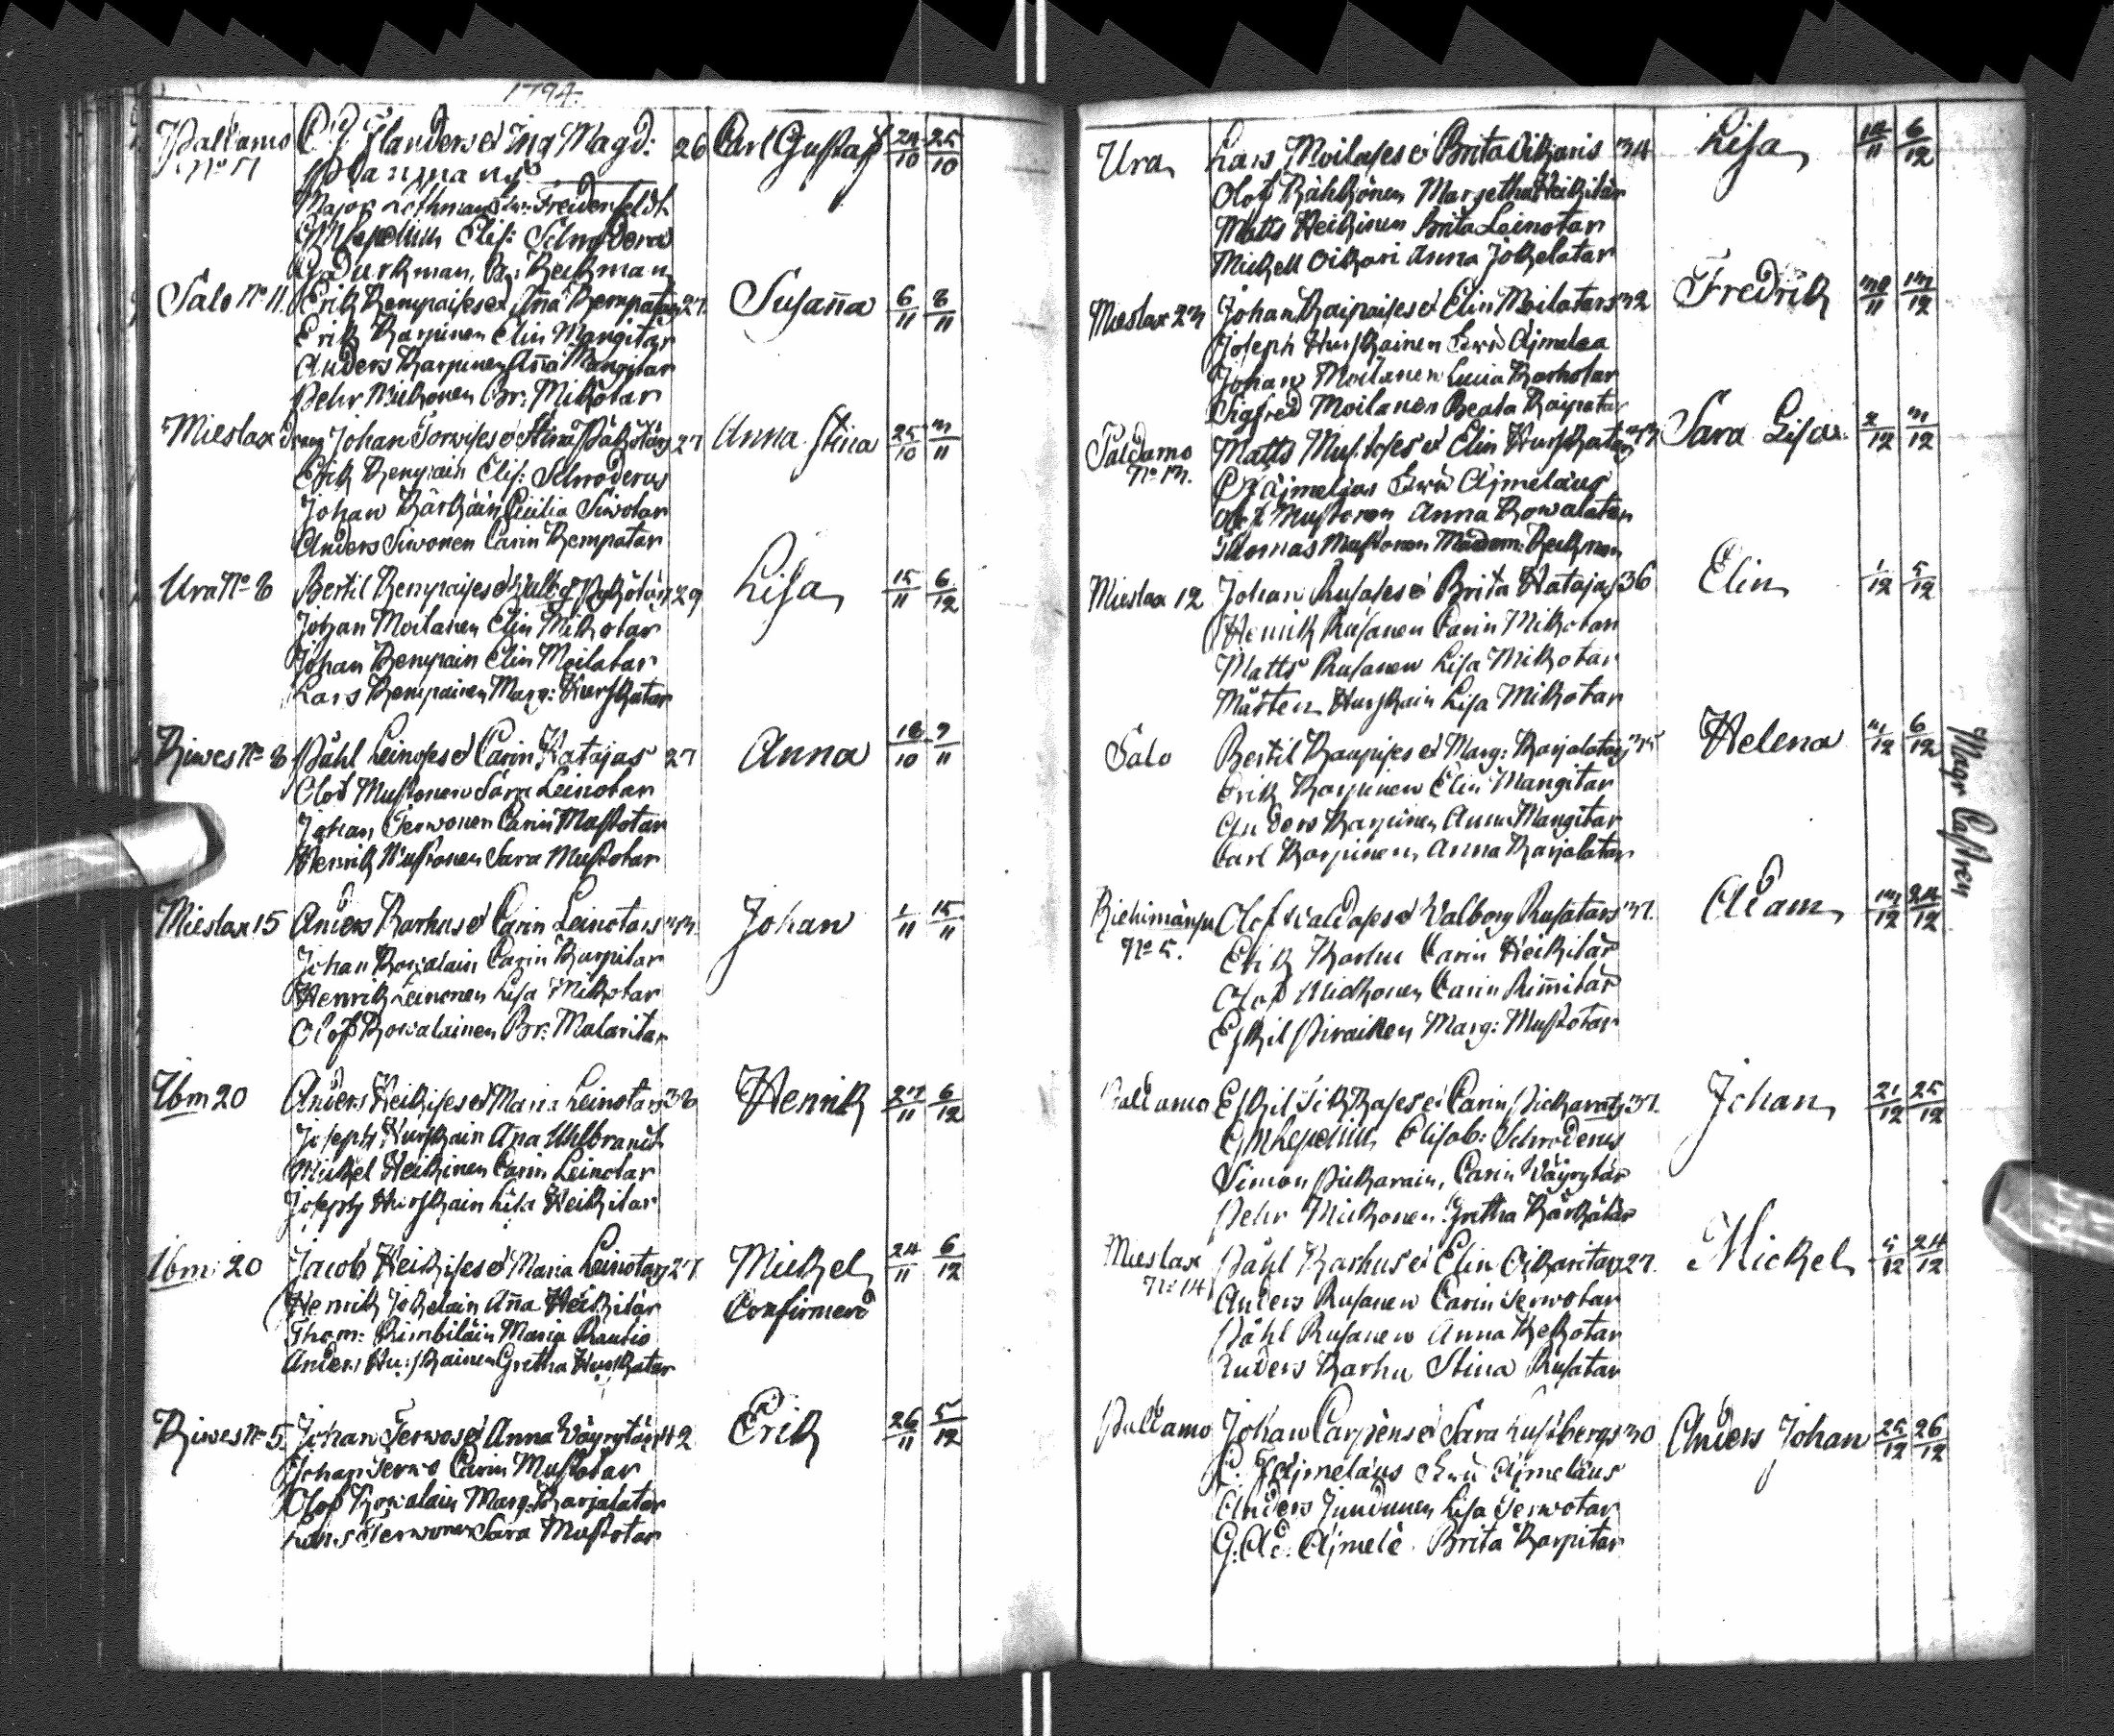 1794.
Paldamo C: J Flander et Ing Magd: 26 Carl Gustaf 24/10 25/10
No 17
Major Lothman Freidenfeldt
Elis: Schroderus
Durkman, Reckman
Salo No 11. Erik Kempaises et Aña Kempatars 27. Susaña 6/11 8/11
Erik Karpinen Elin Mangitar
Anders Karpinen Aña Mangitar
Pehr Mickonen Br: Mikotar
Mieslax Johan Torwises et Stina 27 Anna Stina 25/10 3/11
Erik Kempain Elis: Schroderus
Johan Kärkäin Cicilia Siwotar
Anders Siwonen Carin Kempatar
Ura No 8 Bertil Kempaises et Valbg 29 Lisa 15/11 6/12
Johan Moilanen Elin Mikotar
Johan Kempain Elin Moilatar
Lars Kempainen Marg: Hurskatar
Kiwes No 8 Påhl Leinoses et Carin Katajas 27 Anna 18/10 9/11
Olof Mustonen Sara Leinotar
Johan Terwonen Carin Mustotar
Henrik Mustonen Sara Mustotar
Mieslax 15 Anders Karhus et Carin Leinotars 33. Johan 1/11 15/11
Johan Kowalain Carin Karpitar
Henrik Leinonen Lisa Mikotar
Olof Kowalainen Br: Malaritar
Ibm 20 Anders Heikises et Maria Leinotars 38 Henrik 27/11 6/12
Joseph Hurskain Aña Uhlbrandt
Mickel Heikinen Carin Leinotar
Joseph Hurskain Lisa Heikitar
Ibm: 20 Jacob Heikises et Maria Leinotars 27. Mickel 24/11 6/12
Henrik Jokelain Aña Heikitar Confirmerd
Thom: Rimbiläin Maria Rautio
Anders Hurskainen Gretha Hurskatar
Kiwes No 5. Johan Terwos et Anna Wäyrytärs 42 Erik 26/11 5/12
Johan Terwo Carin Mustotar
Olof Kowalain Marg: Karjalatar
Lars Terwonen Sara Mustotar
Ura Lars Moilases et Brita Oikaris 34 Lisa 12/11 6/12
Olof Kähkönen Margetha Heikitär
Matts Heikinen Brita Leinotar
Mickell Oikari Anna Jokelatar
Mieslax 23 Johan Kaipaises et Elin Moilatars 32 Fredrik 30/11 3/12
Joseph Hurskainen Ajmelaa
Johan Moilanen Lucia Karhotar
Sigfred Moilanen Beata Kaipatar
Paldamo Matts Mustoses et Elin Hurskatars 33 Sara Lisa. 2/12 3/12
No 13. C F Ajmelaus Ajmeläus
Olof Mustonen Anna Kowalatar
Thomas Mustonen Reckman
Mieslax 12 Johan Rusases et Brita Hatajas 36 Elin 1/12 5/12
Henrik Rusanen Carin Mikotar
Matts Rusanen Lisa Mikotar
Mårten Hurskain Lisa Mikotar
Salo Bertil Karpises et Marg: Karjalatars 35 Helena 3/12 6/12
Erik Karpinen Elin Mangitar
Anders Karpinen Anna Mangitar
Carl Karpinen, Anna Karjalatar
Magr Castren
Kiehimänsu Olof Waldases et Valborg Rusatars 37. Adam 13/12 24/12
No 5. Erik Karhu Carin Heikitär
Olof Mickonen Carin
Eskil Piraiken Marg: Mustotar
Paldamo Eskil Sikkases et Carin Pickarats 37. Johan 21/12 25/12
Elisab: Schroderus
Simon Pickarain, Carin Wäyrytär
Pehr Mickonen Gretha Kärkätär
Mieslax Påhl Karhus et Elin Oikaritars 27. Mickel 5/12 24/12
No 14 Anders Rusanen Carin Terwotar
Påhl Rusanen Anna Kekotar
Anders Karhu Stina Rusatar
Paldamo Johan Carpens et Sara Lustbergs 30 Anders Johan 25/12 26/12
C. F Ajmeläus Ajmeläus
Anders Juudunen Lisa Terwotar
G: Ad: Ajmele Brita Karpitar